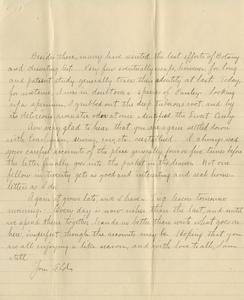 Besides these, many have resisted the best efforts of Botany
and Dissecting set. Very few eventually escape, however, for long
and patient study generally traces their identity at last. Today,
for instance, I was in doubt over a species of Parsley. Looking
up a specimen, I grubbed out the deep tuberous root, and by
its delicious aromatic odor at once identified the Sweet Cicely
Am very glad to hear that you are again settled down
with books, pen, sewing, etc.
your careful account of the place generally four or five times before
the letter finally goes into the packet in the drawer. Not one
fellow in twenty gets as good and interesting and such home
letters as I do.
Again it grows late, and I have a long lesson tomorrow
morning. Every day is now busier than the last, and until
we spend them together I can do no better than write what goes on
here, imperfect though the accounts may be. Hoping that you
are all enjoying a like season, and with love to all, I am
still
Your